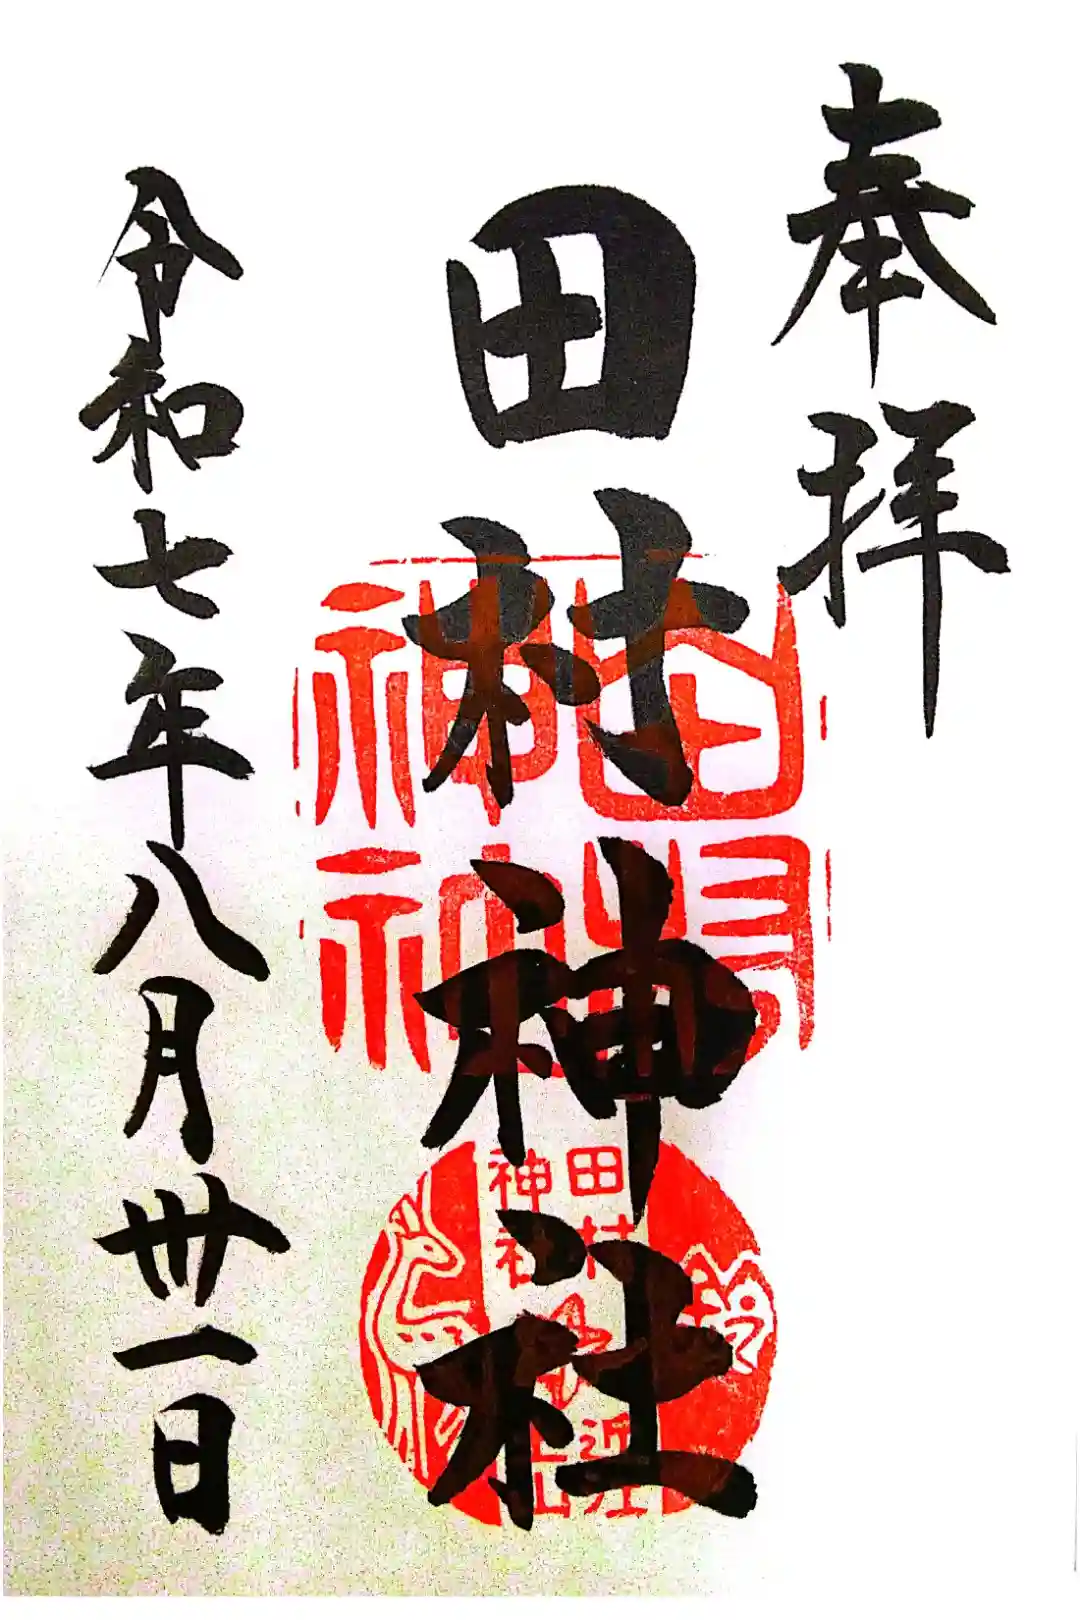 奉拝
田村神社
田村
神社
田村
神社
近江
土山
令和七年八月卅一日